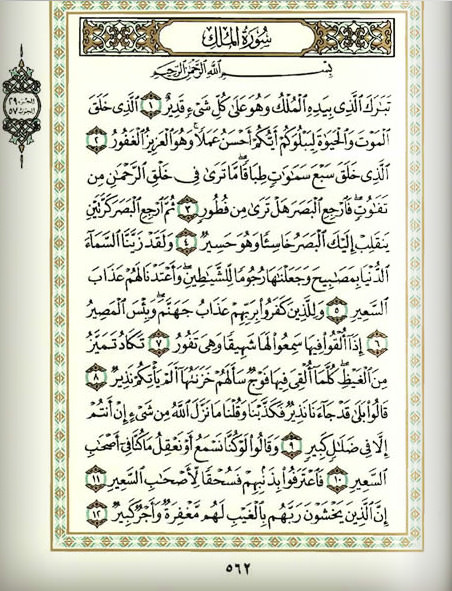 سُورَةُ المُلْكِ
بِسْمِ اللَّهِ الرَّحْمَٰنِ الرَّحِيمِ
الجزء ٢٩
الحزب ٥٧
تَبَٰرَكَ ٱلَّذِى بِيَدِهِ ٱلْمُلْكُ وَهُوَ عَلَىٰ كُلِّ شَىْءٍ قَدِيرٌ ١ ٱلَّذِى خَلَقَ
ٱلْمَوْتَ وَٱلْحَيَوٰةَ لِيَبْلُوَكُمْ أَيُّكُمْ أَحْسَنُ عَمَلًا ۚ وَهُوَ ٱلْعَزِيزُ ٱلْغَفُورُ ٢
ٱلَّذِى خَلَقَ سَبْعَ سَمَٰوَٰتٍ طِبَاقًا ۖ مَّا تَرَىٰ فِى خَلْقِ ٱلرَّحْمَٰنِ مِن
تَفَٰوُتٍ ۖ فَٱرْجِعِ ٱلْبَصَرَ هَلْ تَرَىٰ مِن فُطُورٍ ٣ ثُمَّ ٱرْجِعِ ٱلْبَصَرَ كَرَّتَيْنِ
يَنقَلِبْ إِلَيْكَ ٱلْبَصَرُ خَاسِئًا وَهُوَ حَسِيرٌ ٤ وَلَقَدْ زَيَّنَّا ٱلسَّمَآءَ
ٱلدُّنْيَا بِمَصَٰبِيحَ وَجَعَلْنَٰهَا رُجُومًا لِّلشَّيَٰطِينِ ۖ وَأَعْتَدْنَا لَهُمْ عَذَابَ
ٱلسَّعِيرِ ٥ وَلِلَّذِينَ كَفَرُوا۟ بِرَبِّهِمْ عَذَابُ جَهَنَّمَ ۖ وَبِئْسَ ٱلْمَصِيرُ
٦ إِذَآ أُلْقُوا۟ فِيهَا سَمِعُوا۟ لَهَا شَهِيقًا وَهِىَ تَفُورُ ٧ تَكَادُ تَمَيَّزُ
مِنَ ٱلْغَيْظِ ۖ كُلَّمَآ أُلْقِىَ فِيهَا فَوْجٌ سَأَلَهُمْ خَزَنَتُهَآ أَلَمْ يَأْتِكُمْ نَذِيرٌ ٨
قَالُوا۟ بَلَىٰ قَدْ جَآءَنَا نَذِيرٌ فَكَذَّبْنَا وَقُلْنَا مَا نَزَّلَ ٱللَّهُ مِن شَىْءٍ إِنْ أَنتُمْ
إِلَّا فِى ضَلَٰلٍ كَبِيرٍ ٩ وَقَالُوا۟ لَوْ كُنَّا نَسْمَعُ أَوْ نَعْقِلُ مَا كُنَّا فِىٓ أَصْحَٰبِ
ٱلسَّعِيرِ ١٠ فَٱعْتَرَفُوا۟ بِذَنۢبِهِمْ فَسُحْقًا لِّأَصْحَٰبِ ٱلسَّعِيرِ ١١
إِنَّ ٱلَّذِينَ يَخْشَوْنَ رَبَّهُم بِٱلْغَيْبِ لَهُم مَّغْفِرَةٌ وَأَجْرٌ كَبِيرٌ ١٢
٥٦٢